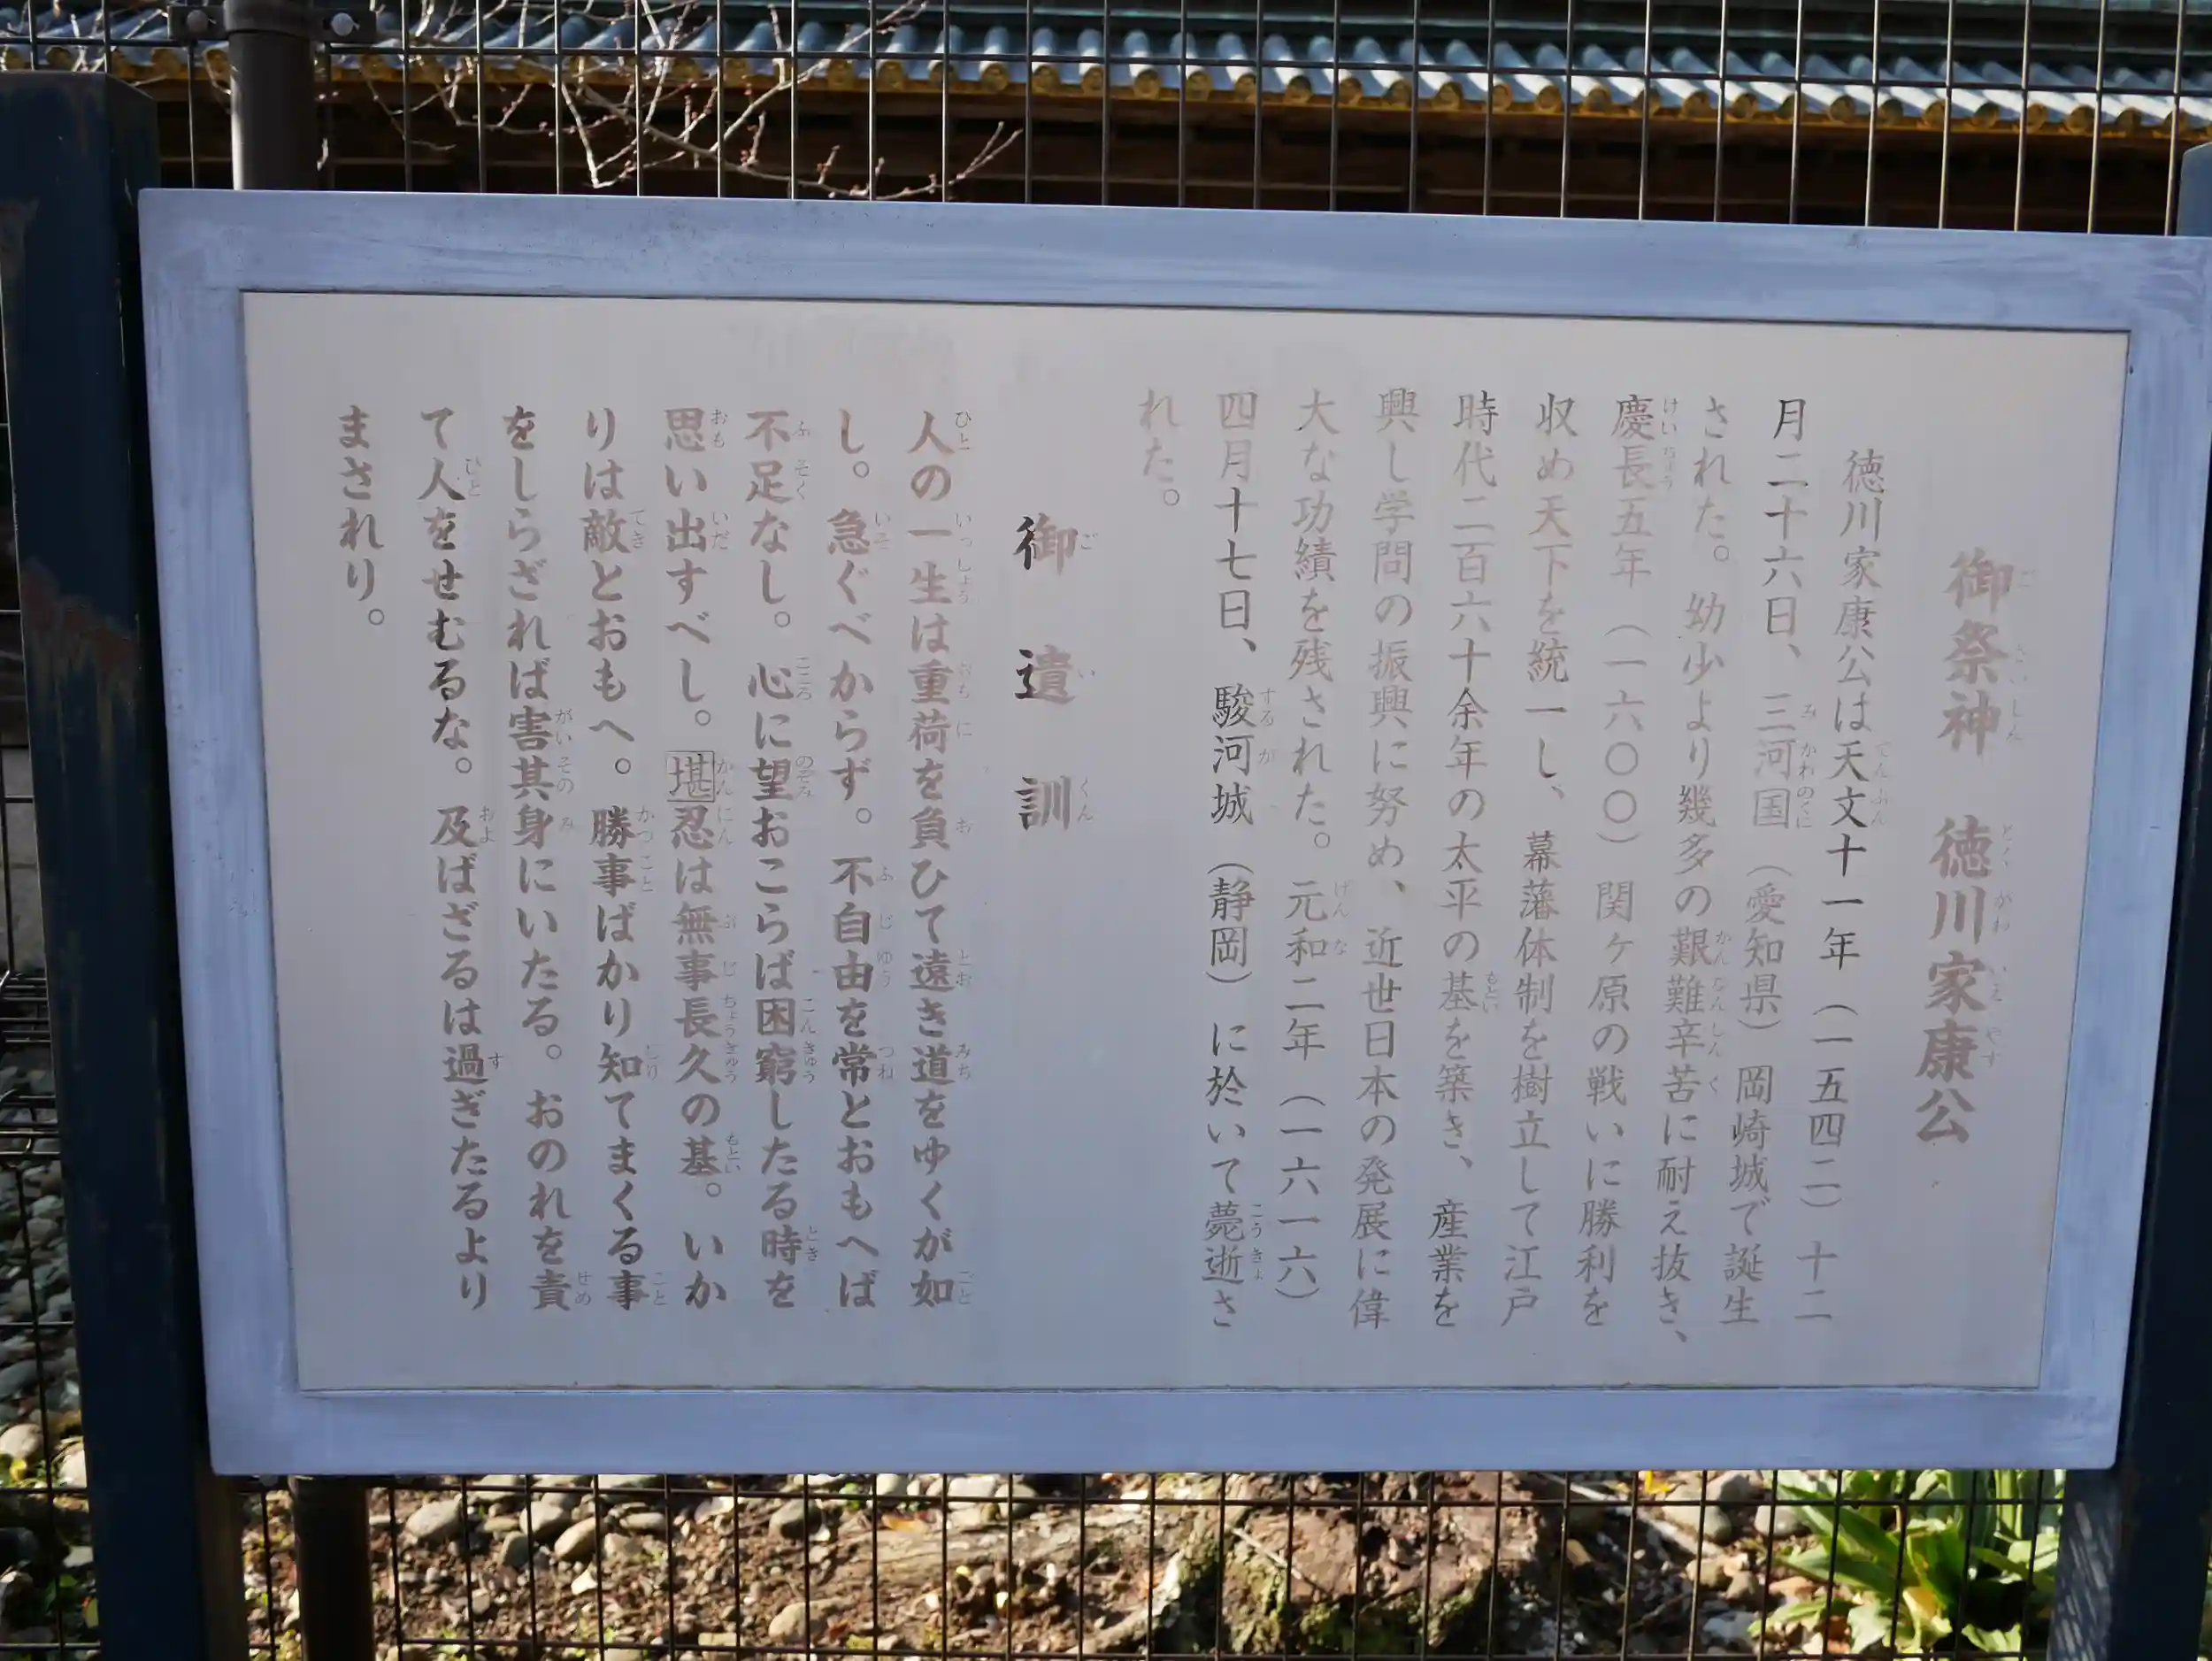 御祭神　徳川家康公
徳川家康公は天文十一年（一五四二）十二
月二十六日、三河国（愛知県）岡崎城で誕生
された。幼少より幾多の艱難辛苦に耐え抜き、
慶長五年（一六〇〇）関ヶ原の戦いに勝利を
収め天下を統一し、幕藩体制を樹立して江戸
時代二百六十余年の太平の基を築き、産業を
興し学問の振興に努め、近世日本の発展に偉
大な功績を残された。元和二年（一六一六）
四月十七日、駿河城（静岡）に於いて薨逝さ
れた。
御遺訓
人の一生は重荷を負ひて遠き道をゆくが如
し。急ぐべからず。不自由を常とおもへば
不足なし。心に望おこらば困窮したる時を
思い出すべし。堪忍は無事長久の基。いか
りは敵とおもへ。勝事ばかり知てまくる事
をしらざれば害其身にいたる。おのれを責
て人をせむるな。及ばざるは過ぎたるより
まされり。